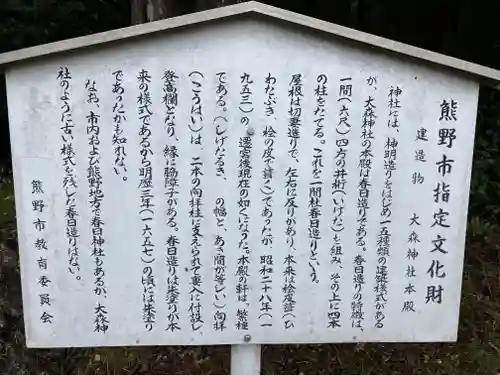 熊野市指定文化財
建造物　大森神社本殿
神社には、神明造りをはじめ一五種類の建築様式がある
が、大森神社の本殿は春日造りである。春日造りの特徴は、
一間(六尺)四方の井桁(いげた)を組み、その上に四本
の柱をたてる。これを一間社春日造りという。
屋根は切妻造りで、左右に反りがあり、本来は桧皮葺(ひ
わたぶき、桧の皮で葺く)であったが、昭和二十八年(一
九五三)の遷宮後現在の如くになった。本殿の軒は、繁棰
である。(しげたるき、の幅と、あき間が等しい)向拝
(こうはい)は、二本の向拝柱に支えられて裏へに付設し、
登高欄となり、縁に脇障子がある。春日造りは朱塗りが本
来の様式であるから明暦三年(一六五七)の頃には朱塗り
であったかも知れない。
なお、市内および熊野地方で春日神社もあるが、大森神
社のように古い様式を残した春日造りはない。
熊野市教育委員会